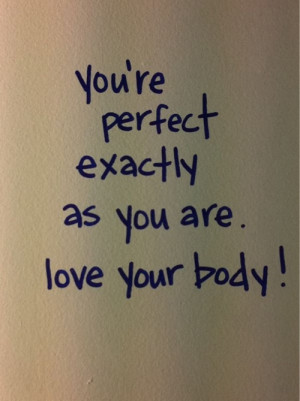 you're
perfect
exactly
as you are.
love your body!